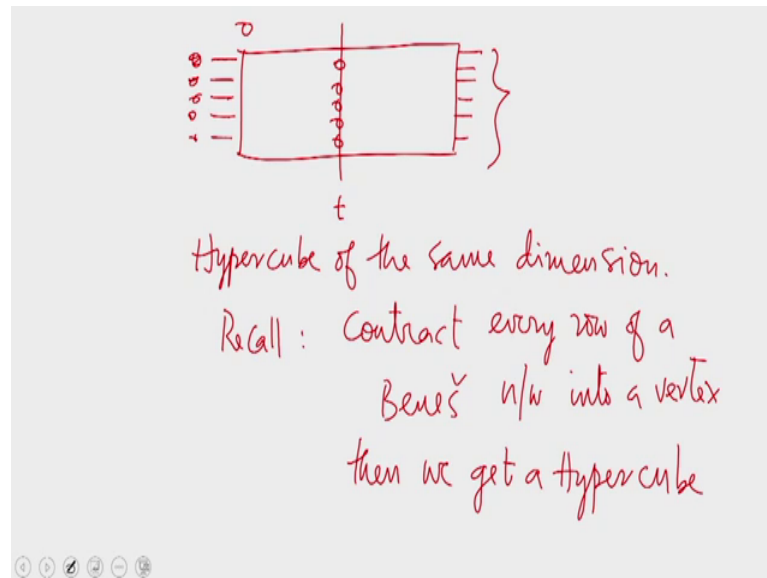 0
t
Hypercube of the same dimension.
Recall : Contract every row of a
Beneš n/w into a vertex
then we get a Hypercube